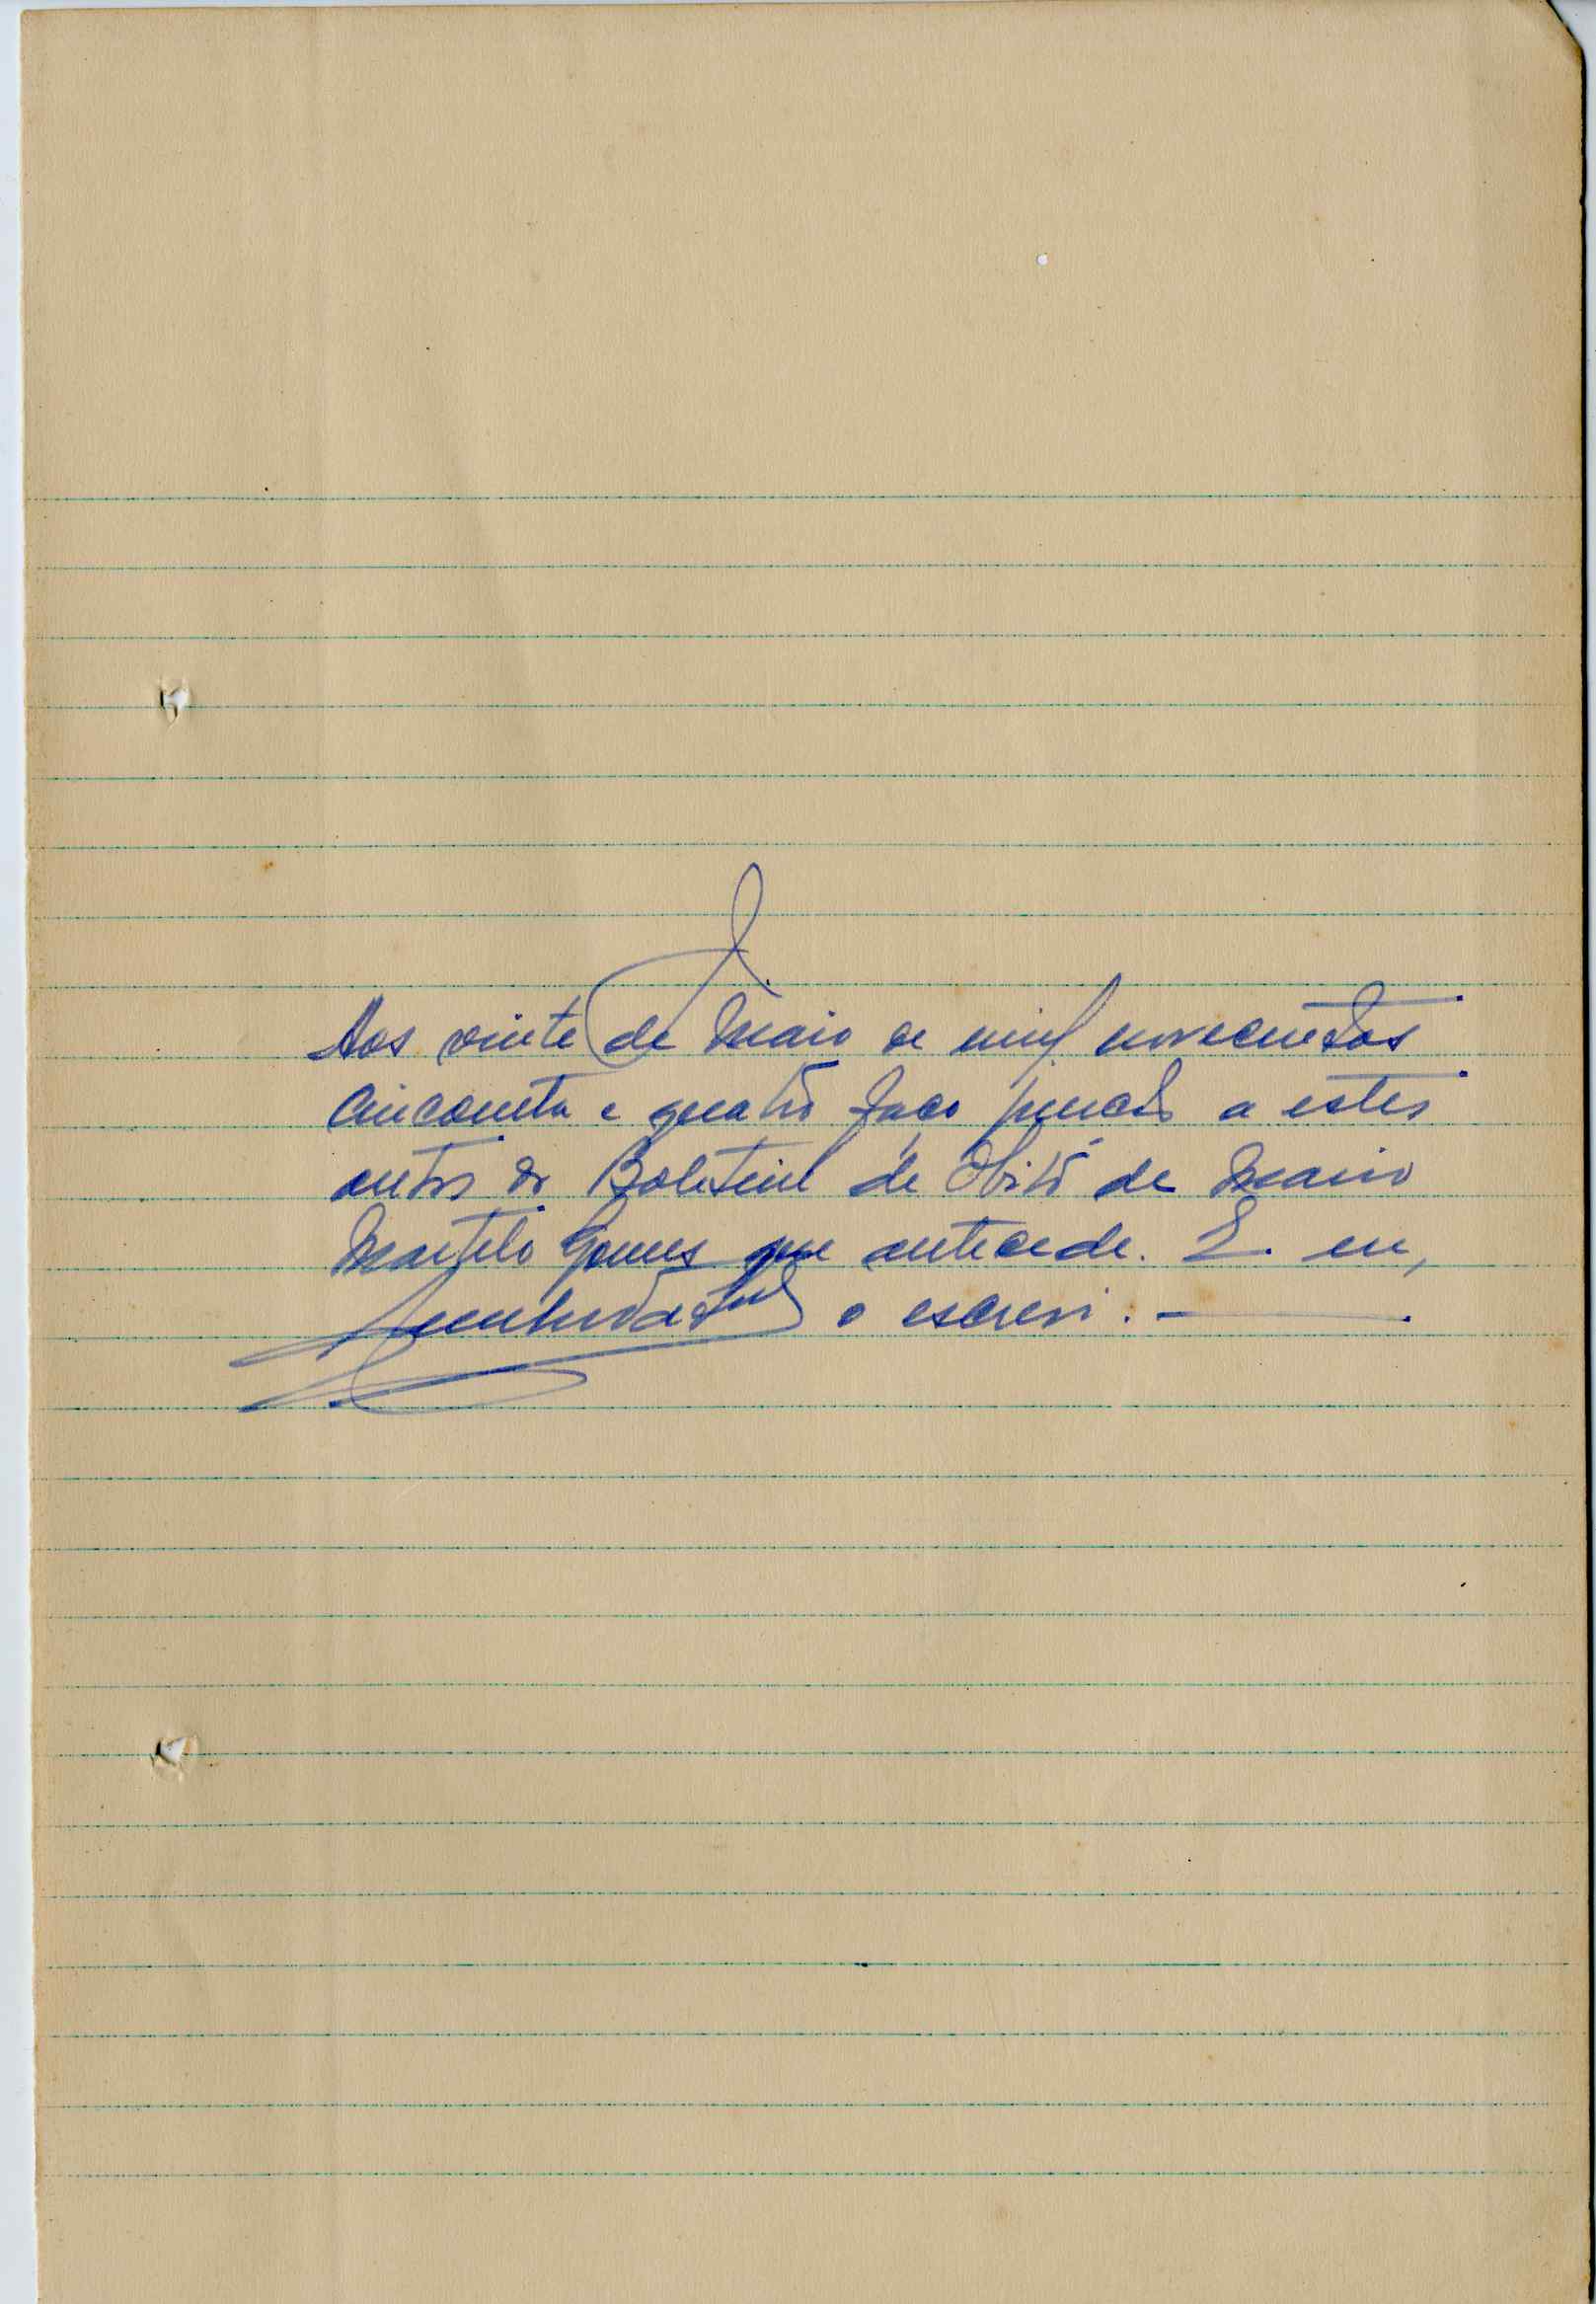 J.
Aos vinte de Maio de mil novecentos
cincoenta e quatro faço junção a estes
autos do Boletim de Óbito de Mario
Martelo Gomes que antecede. E eu,
o escrevi.